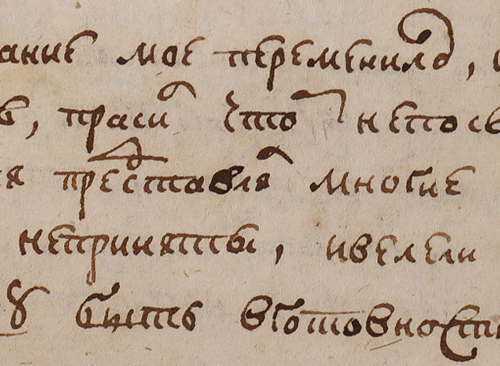 ание мое переменило,
просил что непосы
представля многие
неприняты, ивелели
быть вготовности